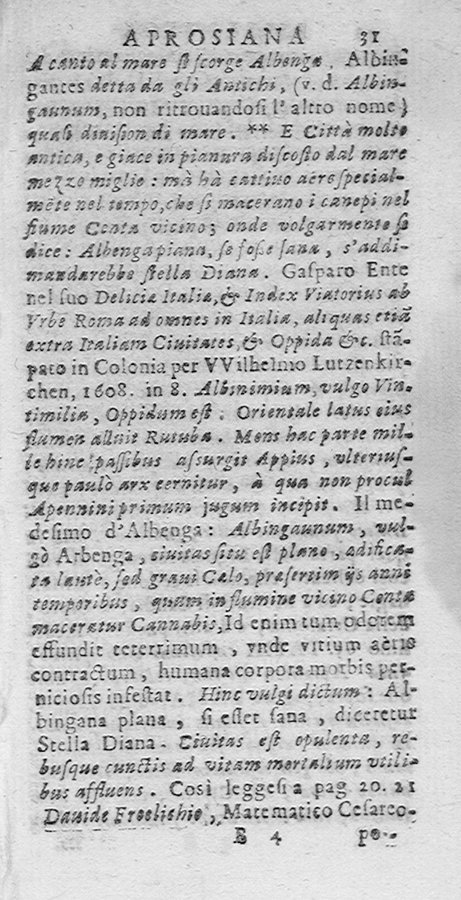 APROSIANA 31
A canto al mare si scorge Albenga. Albin-
gantes detta da gli Antichi, (v. d. Albin-
gaunum, non ritrouandosi l'altro nome)
quasi diuision di mare. ** E Città molto
antica, e giace in pianura discosto dal mare
mezzo miglio: mà hà cattiuo aere special-
mẽte nel tempo, che si macerano i canepi nel
fiume Centa vicino; onde volgarmente si
dice: Albenga piana, se fosse sana, s'addi-
mandarebbe stella Diana. Gasparo Ente
nel suo Delicia Italiæ, & Index Viatorius ab
Vrbe Roma ad omnes in Italia, aliquas etiã
extra Italiam Ciuitates, & Oppida &c. stã-
pato in Colonia per VVilhelmo Lutzenkir-
chen, 1608. in 8. Albinimium, vulgo Vin-
timiliæ, Oppidum est: Orientale latus eius
flumen alluit Rutuba. Mons hac parte mil-
le hinc passibus assurgit Appius, vlterius-
que paulò arx cernitur, à qua non procul
Apennini primum jugum incipit. Il me-
desimo d'Albenga: Albingaunum, vul-
gò Arbenga, ciuitas situ est plano, ædifica-
ta lautè, sed graui Cœlo, præsertim ijs anni
temporibus, quum in flumine vicino Centa
maceratur Cannabis, Id enim tum odorem
effundit teterrimum, vnde vitium aëris
contractum, humana corpora morbis per-
niciosis infestat. Hinc vulgi dictum: Al-
bingana plana, si esset sana, diceretur
Stella Diana. Ciuitas est opulenta, re-
busque cunctis ad vitam mortalium vtili-
bus affluens. Così leggesi a pag 20. 21
Dauide Froelichio, Matematico Cesareo-
E 4 po-